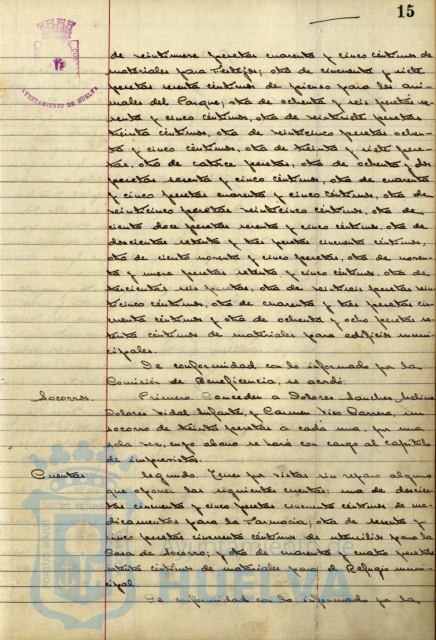 15
AYUNTAMIENTO DE HUELVA
de veintinueve pesetas cuarenta y cinco céntimos de
materiales para festejos; otra de cincuenta y siete
pesetas sesenta céntimos de pienso para los ani-
males del Parque, otra de ochenta y seis pesetas se-
senta y cinco céntimos, otra de veintisiete pesetas
treinta céntimos, otra de veinticinco pesetas ochen-
ta y cinco céntimos, otra de treinta y siete pese-
tas, otra de catorce pesetas, otra de ochenta y dos
pesetas sesenta y cinco céntimos, otra de cuarenta
y cinco pesetas cuarenta y cinco céntimos, otra de
veinticinco pesetas veinticinco céntimos, otra de
ciento doce pesetas sesenta y cinco céntimos, otra de
doscientas setenta y tres pesetas cincuenta céntimos,
otra de ciento noventa y cinco pesetas, otra de noven-
ta y nueve pesetas setenta y cinco céntimos, otra de
trescientas seis pesetas, otra de veintiseis pesetas vein-
ticinco céntimos, otra de cuarenta y tres pesetas cin-
cuenta céntimos y otra de ochenta y ocho pesetas se-
tenta céntimos de materiales para edificios muni-
cipales.
De conformidad con lo informado por la
Comisión de Beneficencia, se acordó:
Socorros. Primero. Conceder a Dolores Sanchez Molina
Dolores Vidal Infante, y Carmen Vio Parrera, un
socorro de treinta pesetas a cada una, por una
sola vez, cuyo abono se hará con cargo al capítulo
de imprevistos.
Cuentas Segundo. Tener por vistas sin reparo alguno
que oponer las siguientes cuentas: una de doscien-
tas cincuenta y cinco pesetas cincuenta céntimos de me-
dicamentos para la Farmacia; otra de sesenta y
cinco pesetas cincuenta céntimos de utensilios para la
Casa de Socorro; y otra de cuarenta y cuatro pesetas
treinta céntimos de materiales para el Refugio muni-
cipal
De conformidad con lo informado por la
HUELVA